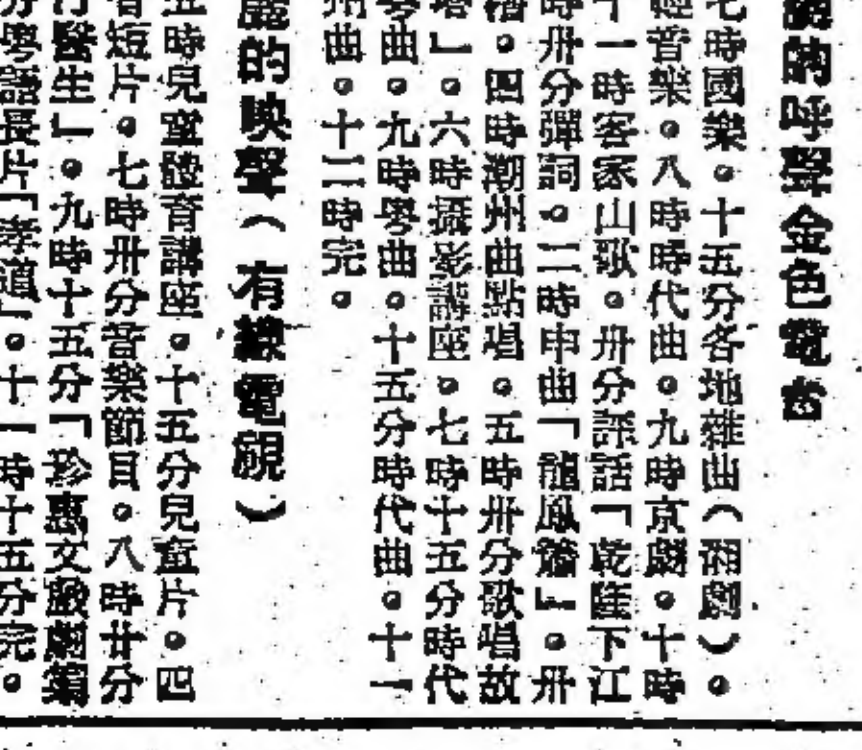 麗的呼聲金色電台
七時國樂。十五分各地雜曲（湘劇）。
音樂。八時時代曲。九時京劇。十時
十一時客家山歌。卅分評話「乾隆下江
時卅分彈詞。二時申曲「龍鳳簪」。卅
。四時潮州曲點唱。五時卅分歌唱故
塔」。六時攝影講座。七時十五分時代
曲。九時粵曲。十五分時代曲。十一
州曲。十二時完。
麗的映聲（有線電視）
五時兒童體育講座。十五分兒童片。四
短片。七時卅分音樂節目。八時廿分
醫生」。九時十五分「珍惠文戲劇編
分粵語長片「孝道」。十一時十五分完。